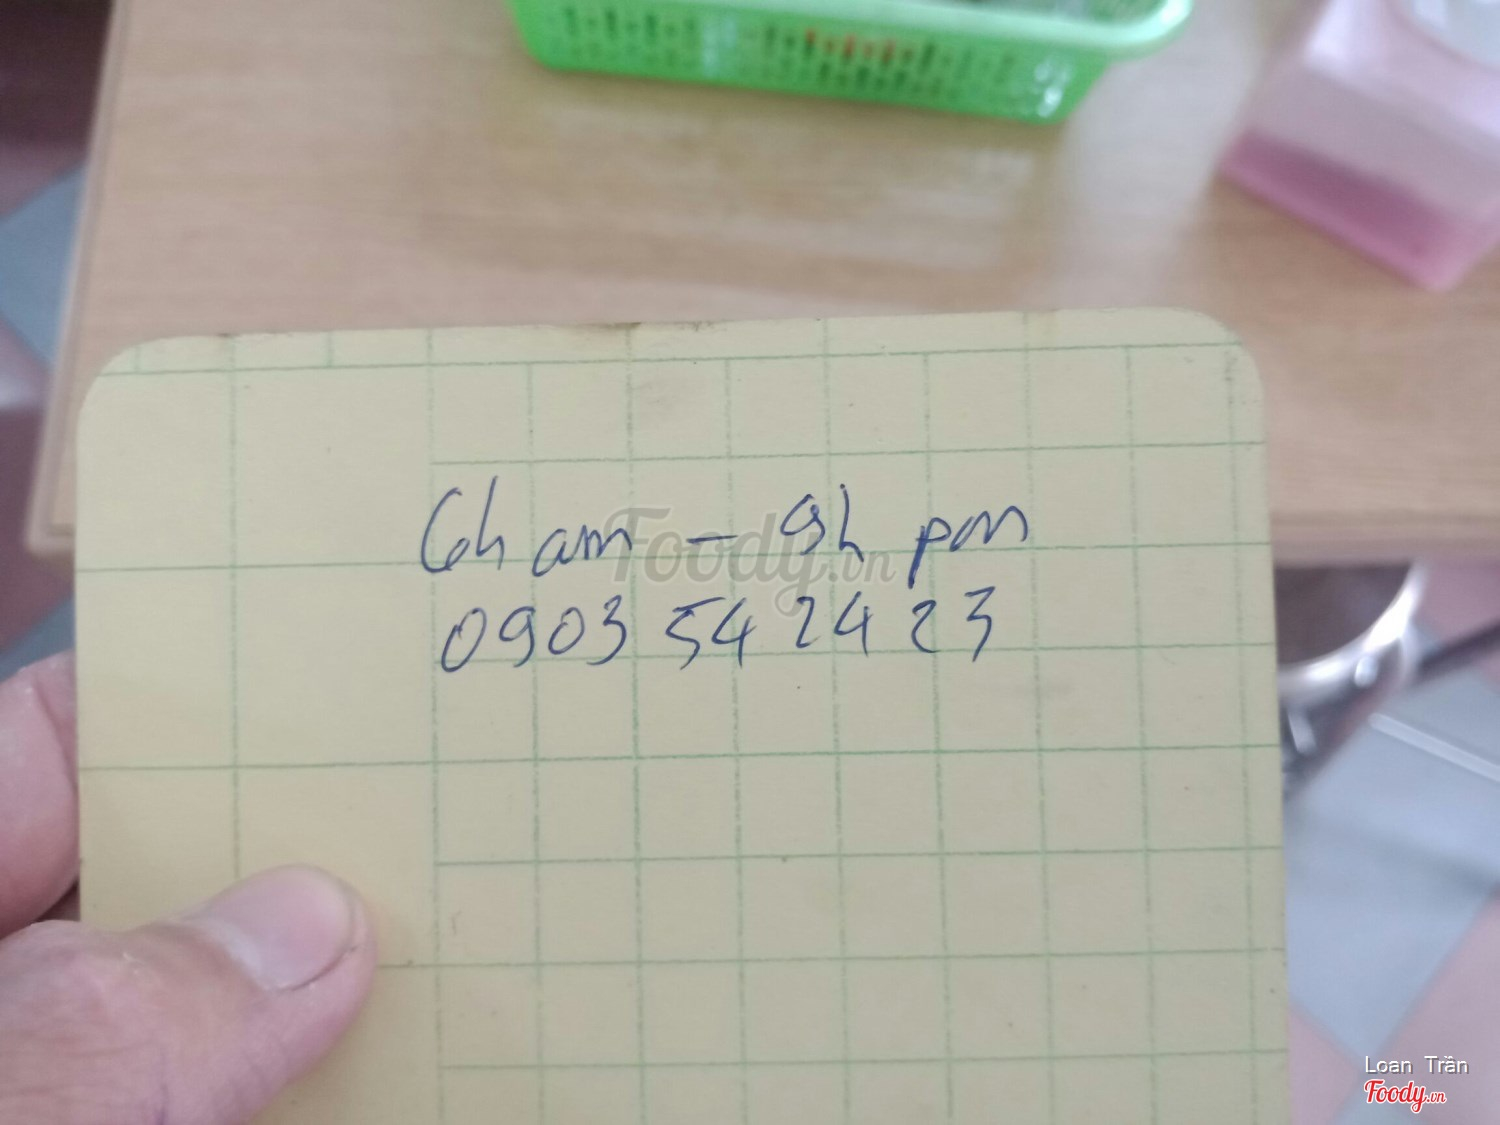 6h am - 9h pm
0903 54 24 23
Foody.vn
Loan Trần
Foody.vn